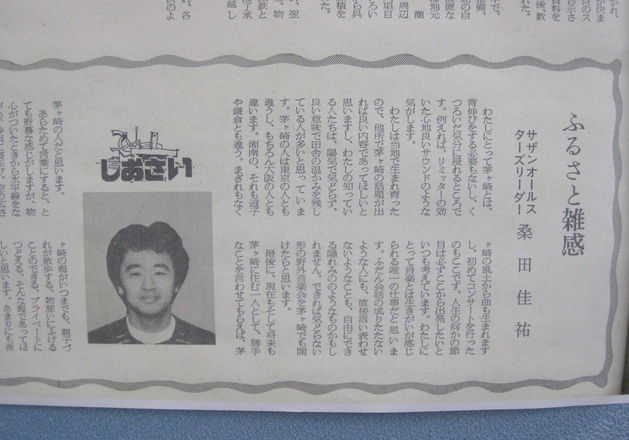 ふるさと雑感
サザンオールス
ターズリーダー 桑田佳祐
わたしにとって茅ヶ崎とは、
背伸びをする必要もないし、く
つろいだ気分に浸れるところで
す。例えれば、リミッターの効
いた心地良いサウンドのような
気がします。
わたしは当地で生まれ育った
ので、他所で茅ヶ崎の話題が出
れば良い内容であってほしいと
思いますし、わたしの知ってい
る人たちは、陽気で気どらず、
良い意味で田舎の温かみを残し
ている人が多いと思っていま
す。茅ヶ崎の人は東京の人とも
違うし、もちろん大阪の人とも
違います。湘南の、それも逗子
や鎌倉とも違う、まぎれもなく
茅ヶ崎の人だと思います。
あらためて言葉にすると、と
ても野暮な感じがしますが、物
心がついたときから太平洋をな
しおさい
ヶ崎の風土から曲も生まれます
し、初めてコンサートを行った
のもここです。人生の何かの節
目は必ずここから出発したいと
いつも考えています。わたしに
とって音楽とは生きがいが感じ
られる唯一の仕事だと思いま
す。ふだん会話の成りたたない
ような人にも、直接言い表わせ
ないようなことも、自由にでき
る隠れみののようなものかもし
れません。できれば気どらない
形の野外音楽会を茅ヶ崎でも開
けたらと思います。
最後に、現在もそして将来も
茅ヶ崎に住む一人として、勝手
なことを言わせてもらえば、茅
ヶ崎の海がいつまでも、親子づ
れが散歩する、物思いにふける
ことのできる、プライベートに
つどえる、そんな海であってほ
しいと思います。あまりにも派